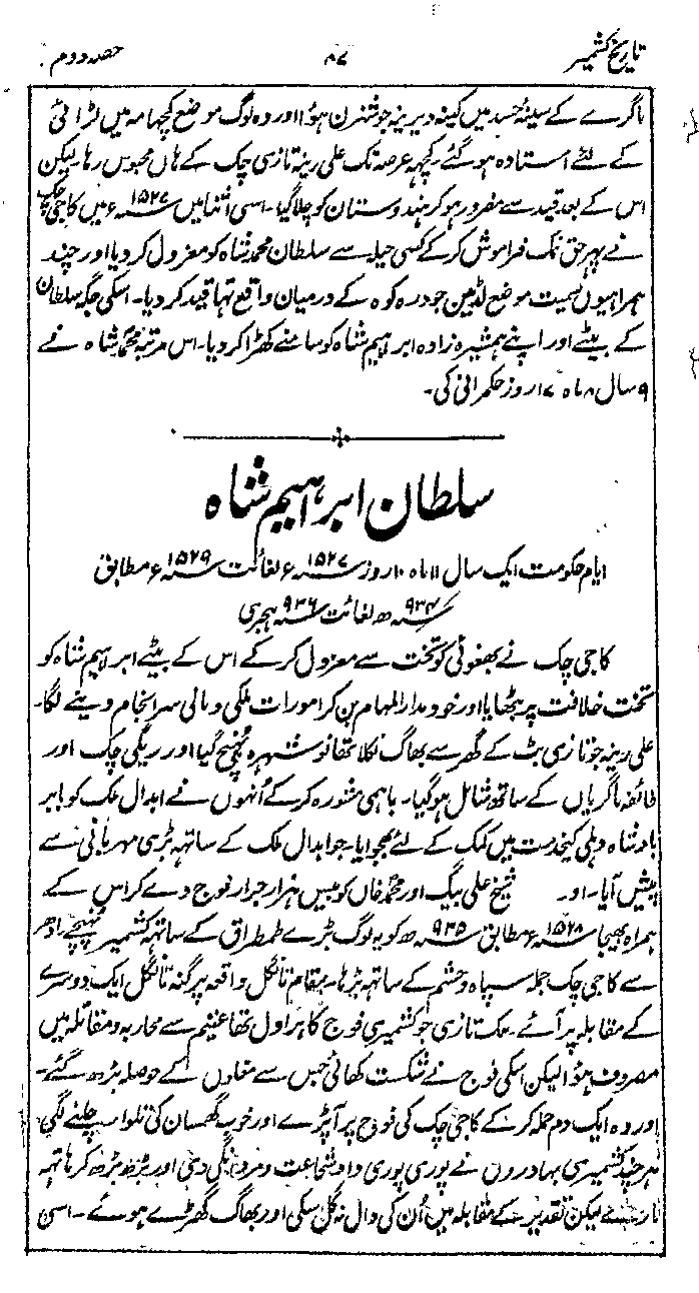 تاریخ کشمیر ۸۷ حصہ دوم
ماگرے کے سینۂ حسد میں کینہ دیرینہ جوشزن ہؤا اور وہ لوگ موضع کچہامہ میں لڑائی
کے لئے استادہ ہو گئے۔ کچھ عرصہ تک علی رینہ تازی چک کے ہاں محبوس رہا۔ لیکن
اس کے بعد قید سے مفرور ہو کر ہندوستان کو چلا گیا۔ اسی اثنا میں ۱۵۲۷ء میں کاجی چک
نے پھر حق نمک فراموش کر کے کسی حیلہ سے سلطان محمد شاہ کو معزول کر دیا اور چند
ہمراہیوں سمیت موضع لڈین جو درہ کوہ کے درمیان واقع تھا قید کر دیا۔ اسکی جگہ سلطان
کے بیٹے اور اپنے ہمشیرہ زادہ ابراہیم شاہ کو سامنے کھڑا کر دیا۔ اس مرتبہ محمد شاہ نے
۹ سال ۸ ماہ ۷ روز حکمرانی کی۔
سلطان ابراہیم شاہ
ایام حکومت ایک سال ۱۱ ماہ ۱۰ روز ۱۵۲۷ء لغائت ۱۵۲۹ء مطابق
۹۳۴ھ لغائت ۹۳۶ ہجری
کاجی چک نے بھنوئی کو تخت سے معزول کر کے اس کے بیٹے ابراہیم شاہ کو
تخت خلافت پر بٹھایا اور خود مدارالمہام بن کر امورات ملکی و مالی سرانجام دینے لگا۔
علی رینہ جو تازی بٹ کے گھر سے بھاگ نکلا تھا نوشہرہ پہنچ گیا اور ریگی چک اور
طائفہ ماگریاں کے ساتھ شامل ہو گیا۔ باہمی مشورہ کر کے اُنہوں نے ابدال ملک کو بابر
بادشاہ دہلی کیخدمت میں کمک کے لئے بھجوایا۔ جو ابدال ملک کے ساتھ بڑی مہربانی سے
پیش آیا۔ اور شیخ علی بیگ اور محمد خاں کو بیس ہزار جرار فوج دے کر اس کے
ہمراہ بھیجا ۱۵۲۸ء مطابق ۹۳۵ھ کو یہ لوگ بڑے طمطراق کے ساتھ کشمیر پہنچے۔ ادھر
سے کاجی چک جملہ سپاہ و حشم کے ساتھ بڑھا۔ بمقام تانگل واقعہ پرگنہ تانگل ایک دوسرے
کے مقابلہ پر آئے۔ ملک تازی جو کشمیری فوج کا ہراول تھا غنیم سے محاربہ و مقاتلہ میں
مصروف ہؤا لیکن اسکی فوج نے شکست کھائی جس سے مغلوں کے حوصلہ بڑھ گئے۔
اور وہ ایک دم حملہ کر کے کاجی چک کی فوج پر آپڑے اور خوب گھمسان کی تلوار چلنے لگی۔
ہر چند کشمیری بہادروں نے پوری پوری داد شجاعت و مردانگی دی اور بڑھ بڑھ کر ہاتھ
مارتے رہے لیکن تقدیر کے مقابلہ میں اُن کی دال نہ گل سکی اور بھاگ کھڑے ہوئے۔ اسی